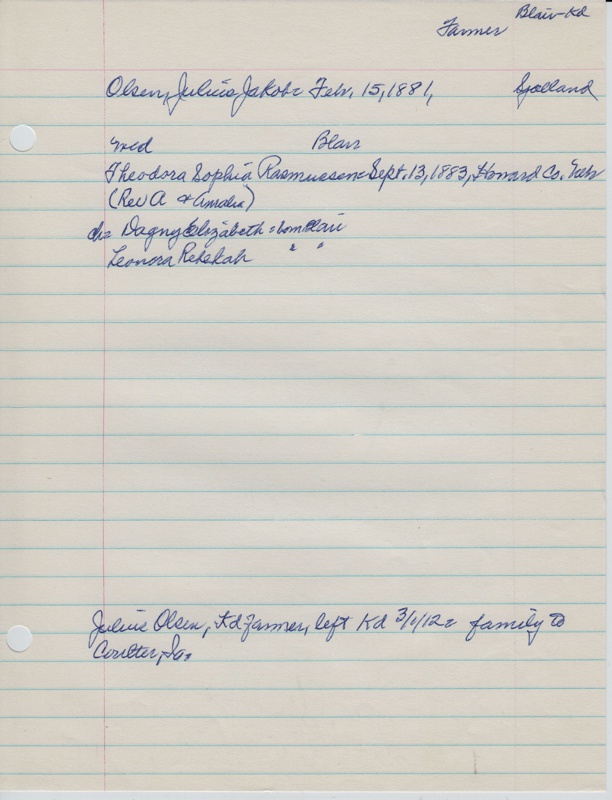 Blair-Kd
Farmer
Olsen, Julius Jakob = Feb. 15, 1881, Sjolland
wed Blair
Theodora Sophia Rasmussen = Sept. 13, 1883, Howard Co. Neb
(Rev A & Amalia)
ch = Dagny Elizabeth = born Blair
Leonora Rebekah " "
Julius Olsen, Kd farmer, left Kd 3/1/12 = family to
Coulter, Ia.